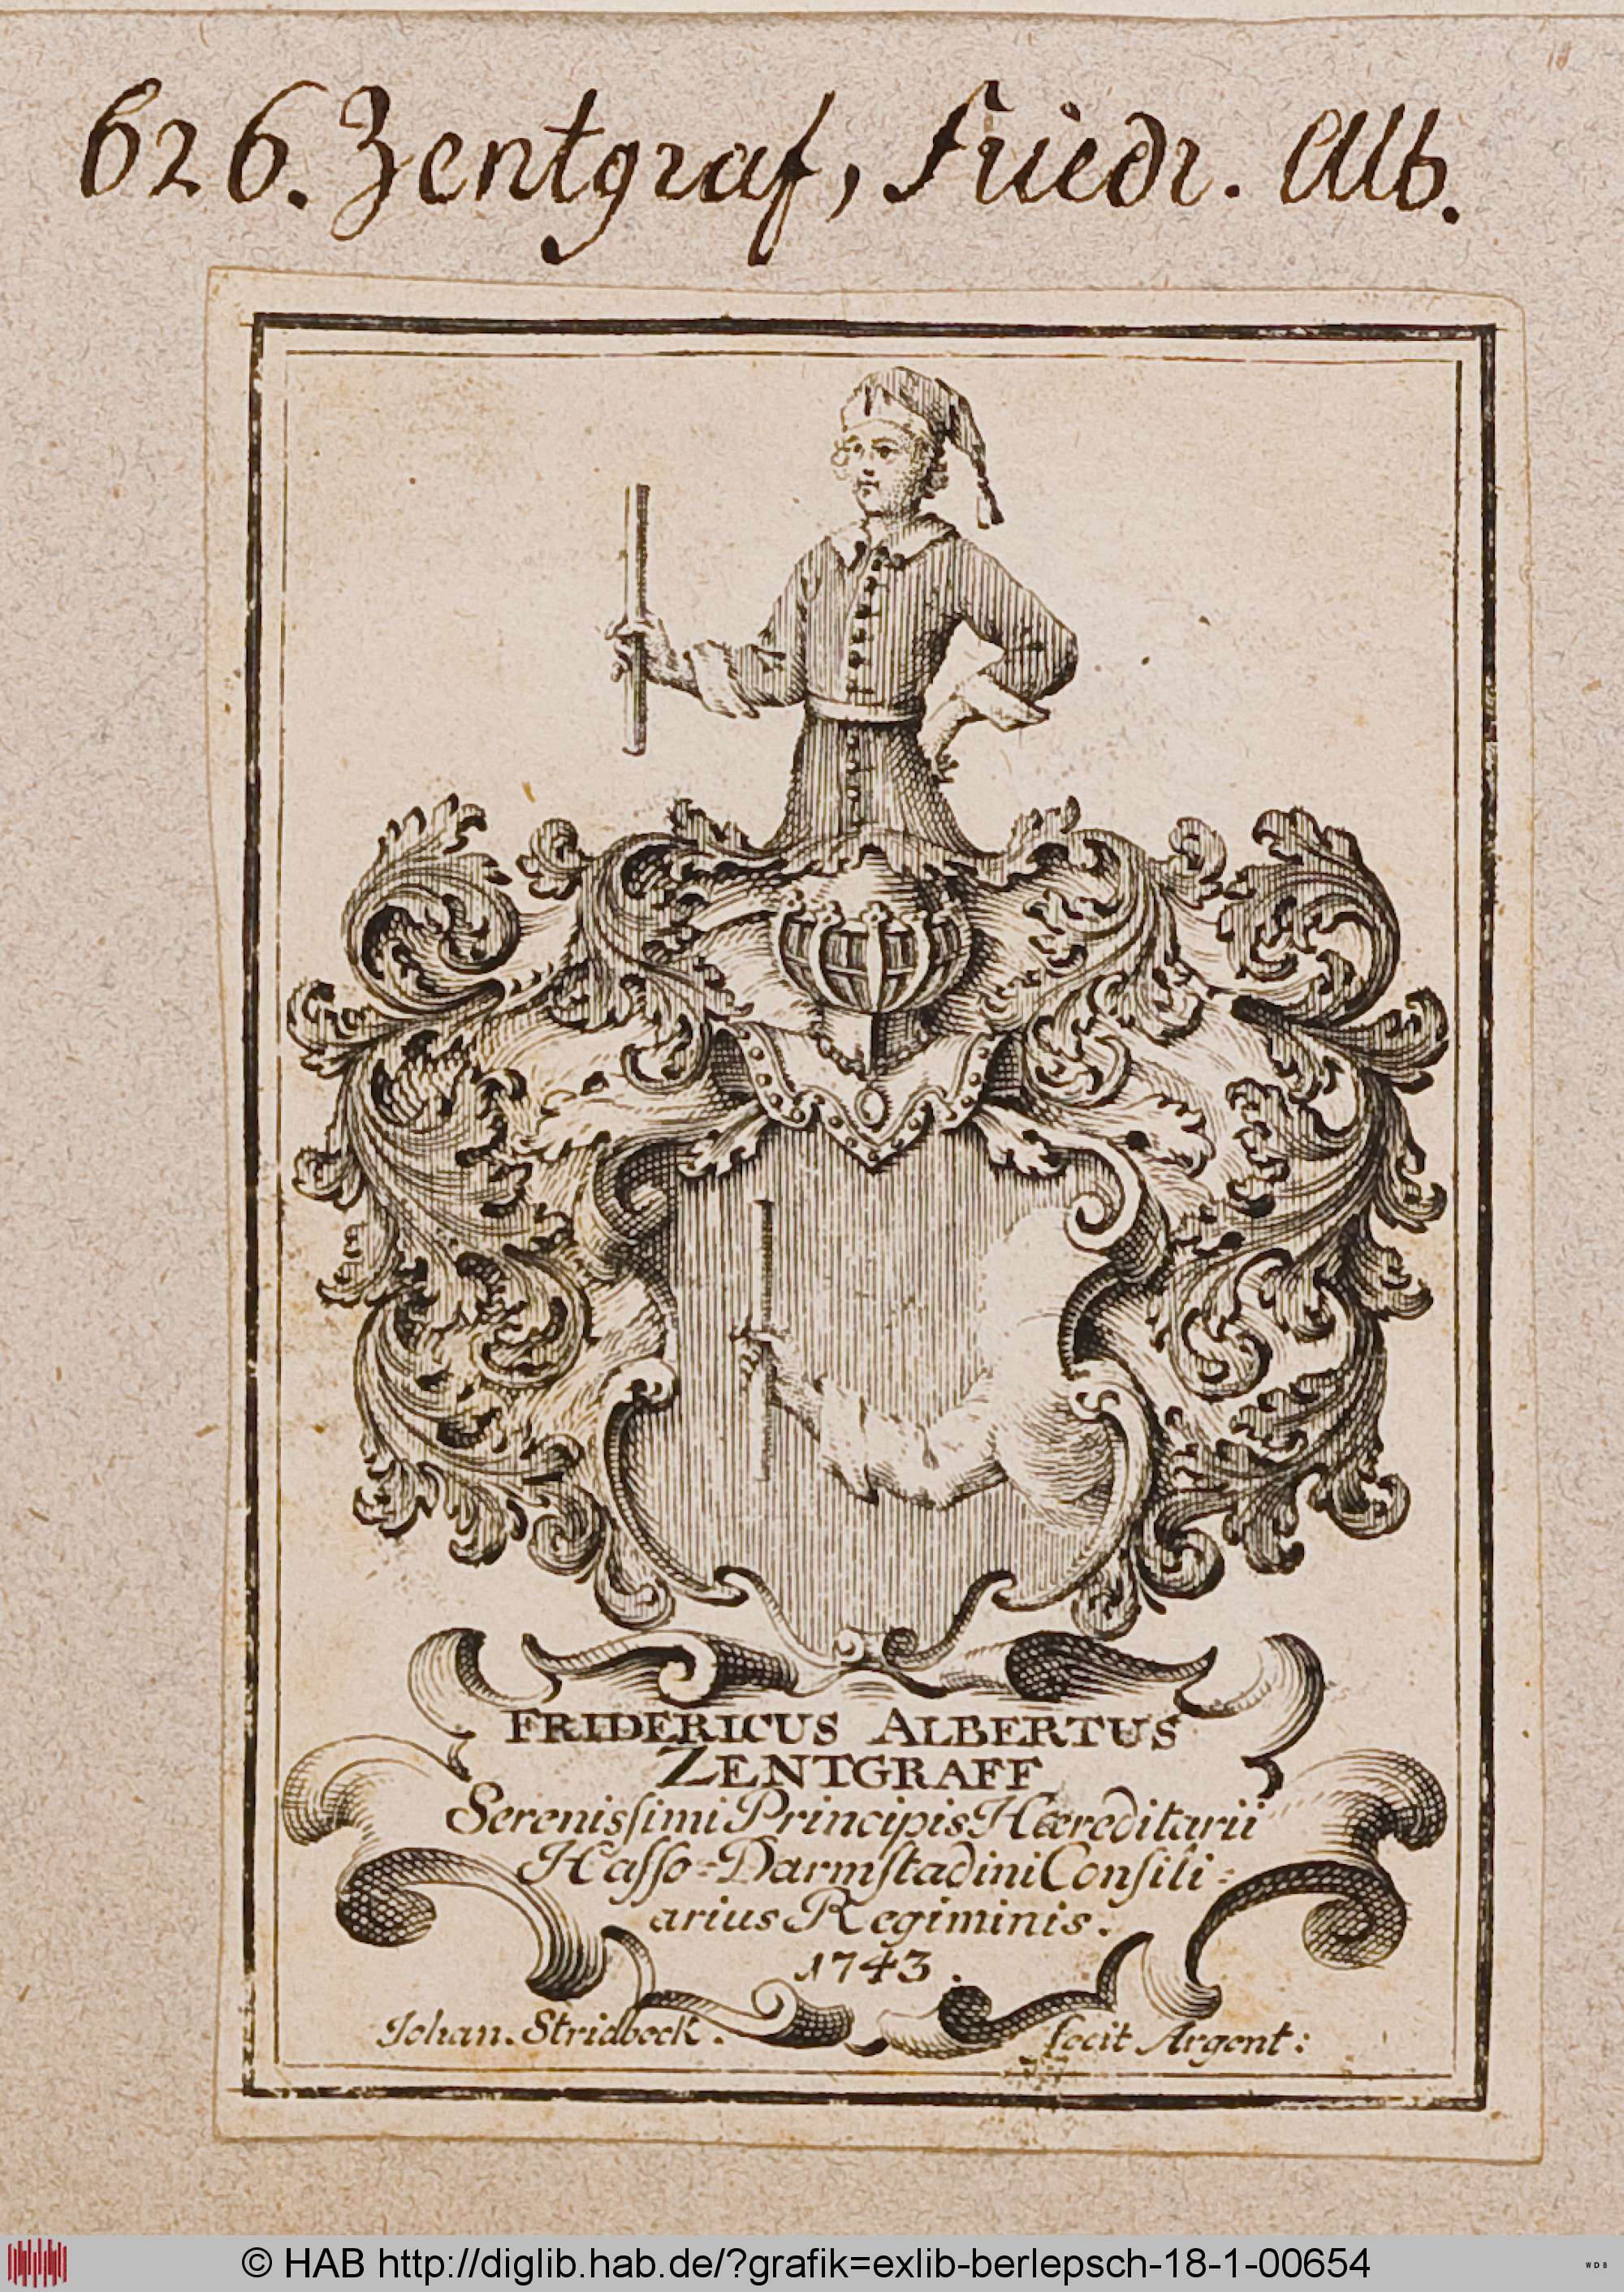 626. Zentgraf, Friedr. Alb.
FRIDERICUS ALBERTUS
ZENTGRAFF
Serenisſimi Principis Hæreditarii
Haſſo=Darmſtadini Conſili=
arius Regiminis.
1743.
Johan. Stridbeck. fecit Argent:
© HAB http://diglib.hab.de/?grafik=exlib-berlepsch-18-1-00654
WDB